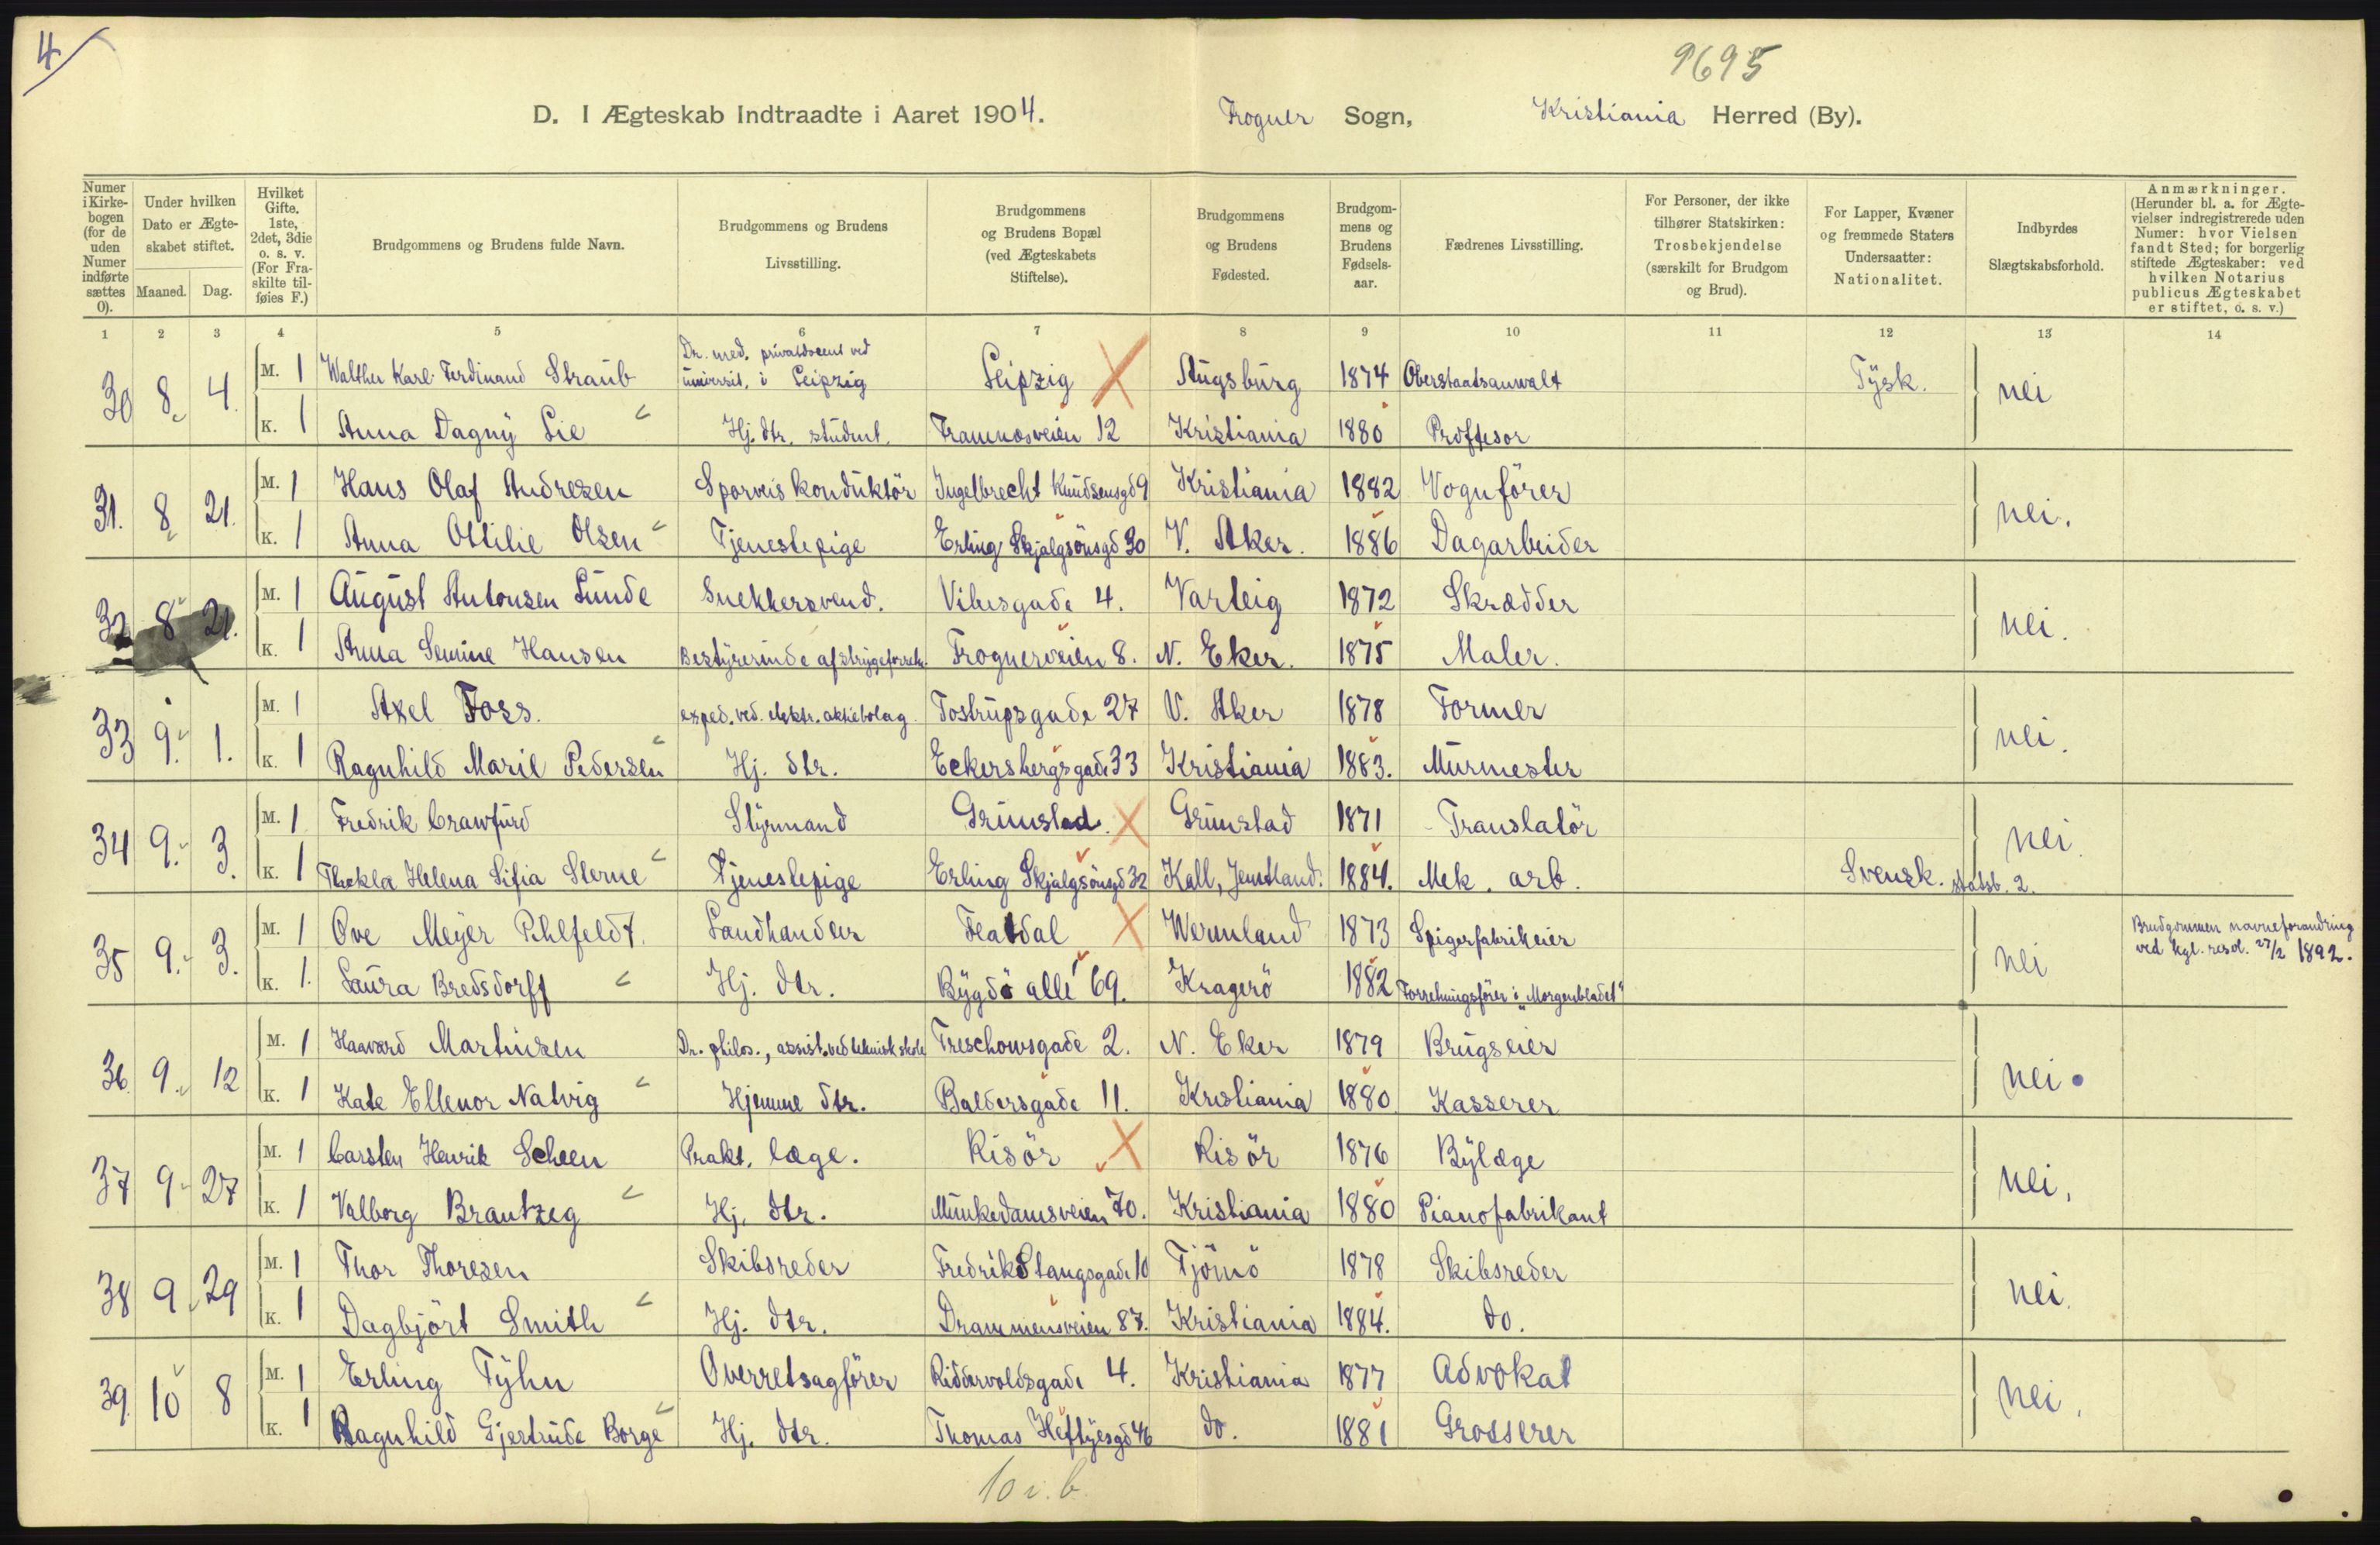 4
9695
D. I Ægteskab Indtraadte i Aaret 1904. Frogner Sogn, Kristiania Herred (By).
Numer i Kirkebogen (for de uden Numer indførte sættes 0). Under hvilken Dato er Ægteskabet stiftet. Maaned. Dag. Hvilket Gifte. 1ste, 2det, 3die o. s. v. (For Fraskilte tilføies F.) Brudgommens og Brudens fulde Navn. Brudgommens og Brudens Livsstilling. Brudgommens og Brudens Bopæl (ved Ægteskabets Stiftelse). Brudgommens og Brudens Fødested. Brudgommens og Brudens Fødselsaar. Fædrenes Livsstilling. For Personer, der ikke tilhører Statskirken: Trosbekjendelse (særskilt for Brudgom og Brud). For Lapper, Kvæner og fremmede Staters Undersaatter: Nationalitet. Indbyrdes Slægtskabsforhold. Anmærkninger. (Herunder bl. a. for Ægtevielser indregistrerede uden Numer: hvor Vielsen fandt Sted; for borgerlig stiftede Ægteskaber: ved hvilken Notarius publicus Ægteskabet er stiftet, o. s. v.)
1 2 3 4 5 6 7 8 9 10 11 12 13 14
30 8 4. M. 1 Walther Karl Ferdinand Straub Dr. med. privatdocent ved universit. i Leipzig Leipzig Augsburg 1874 Oberstaatsanwalt Tysk. nei
K. 1 Anna Dagny Lie Hj. dtr. student. Framnæsveien 12 Kristiania 1880 Proffesor
31. 8 21. M. 1 Hans Olaf Andresen Sporveiskonduktör Ingelbrecht Knudsensgd 9 Kristiania 1882 Vognförer nei.
K. 1 Anna Ottilie Olsen Tjenestepige Erling Skjalgsönsgd 30 V. Aker. 1886 Dagarbeider
32 8 21. M. 1 August Antonsen Lunde Snekkersvend. Vibesgade 4. Varteig 1872 Skrædder nei.
K. 1 Anna Semine Hansen Bestyrerinde af strygeforretn. Frognerveien 8. N. Eker. 1875 Maler.
33 9. 1. M. 1 Axel Foss. exped. ved. elektr. aktiebolag. Tostrupsgade 27 V. Aker 1878 Former nei.
K. 1 Ragnhild Marie Pedersen Hj. dtr. Eckersbergsgade 33 Kristiania 1883. Murmester
34 9. 3. M. 1 Fredrik Crawfurd Styrmand Grimstad. Grimstad 1871 Translatör nei.
K. 1 Theckla Helena Sifia Sterne Tjenestepige Erling Skjalgsönsgd 32 Kall, Jemtland. 1884. Mek. arb. Svensk. statsb. 2.
35 9. 3. M. 1 Ove Meyer Pihlfeldt. Landhandler Featdal Wermland 1873 Spigerfabrikeier nei Brudgommen navneforandring
ved kgl. resol. 27/2 1892.
K. 1. Laura Bredsdorff Hj. dtr. Bygdö allé 69. Kragerö 1882 Forretningsförer i „Morgenbladet"
36. 9. 12 M. 1 Haavard Martinsen Dr. philos., assist. ved teknisk skole Treschowsgade 2. N. Eker 1879 Brugseier nei.
K. 1 Kate Ellenor Natvig Hjemme dtr. Baldersgade 11. Kristiania 1880 Kasserer
37 9. 27 M. 1 Carsten Henrik Scheen Prakt. læge. Risör Risör 1876 Bylæge nei.
K. 1 Valborg Brantzeg Hj. dtr. Munkedamsveien 70. Kristiania 1880 Pianofabrikant
38 9 29 M. 1 Thor Thoresen Skibsreder Fredrik Stangsgade 10 Tjömö 1878 Skibsreder nei.
K. 1 Dagbjört Smith Hj. dtr. Drammensveien 87. Kristiania 1884. do.
39. 10 8 M. 1 Erling Tyhn Overretsagförer Riddervoldsgade 4. Kristiania 1877 Advokat nei.
K. 1 Ragnhild Gjertrude Borge Hj. dtr. Thomas Heftyesgd 46 do. 1881 Grosserer
10 i. b